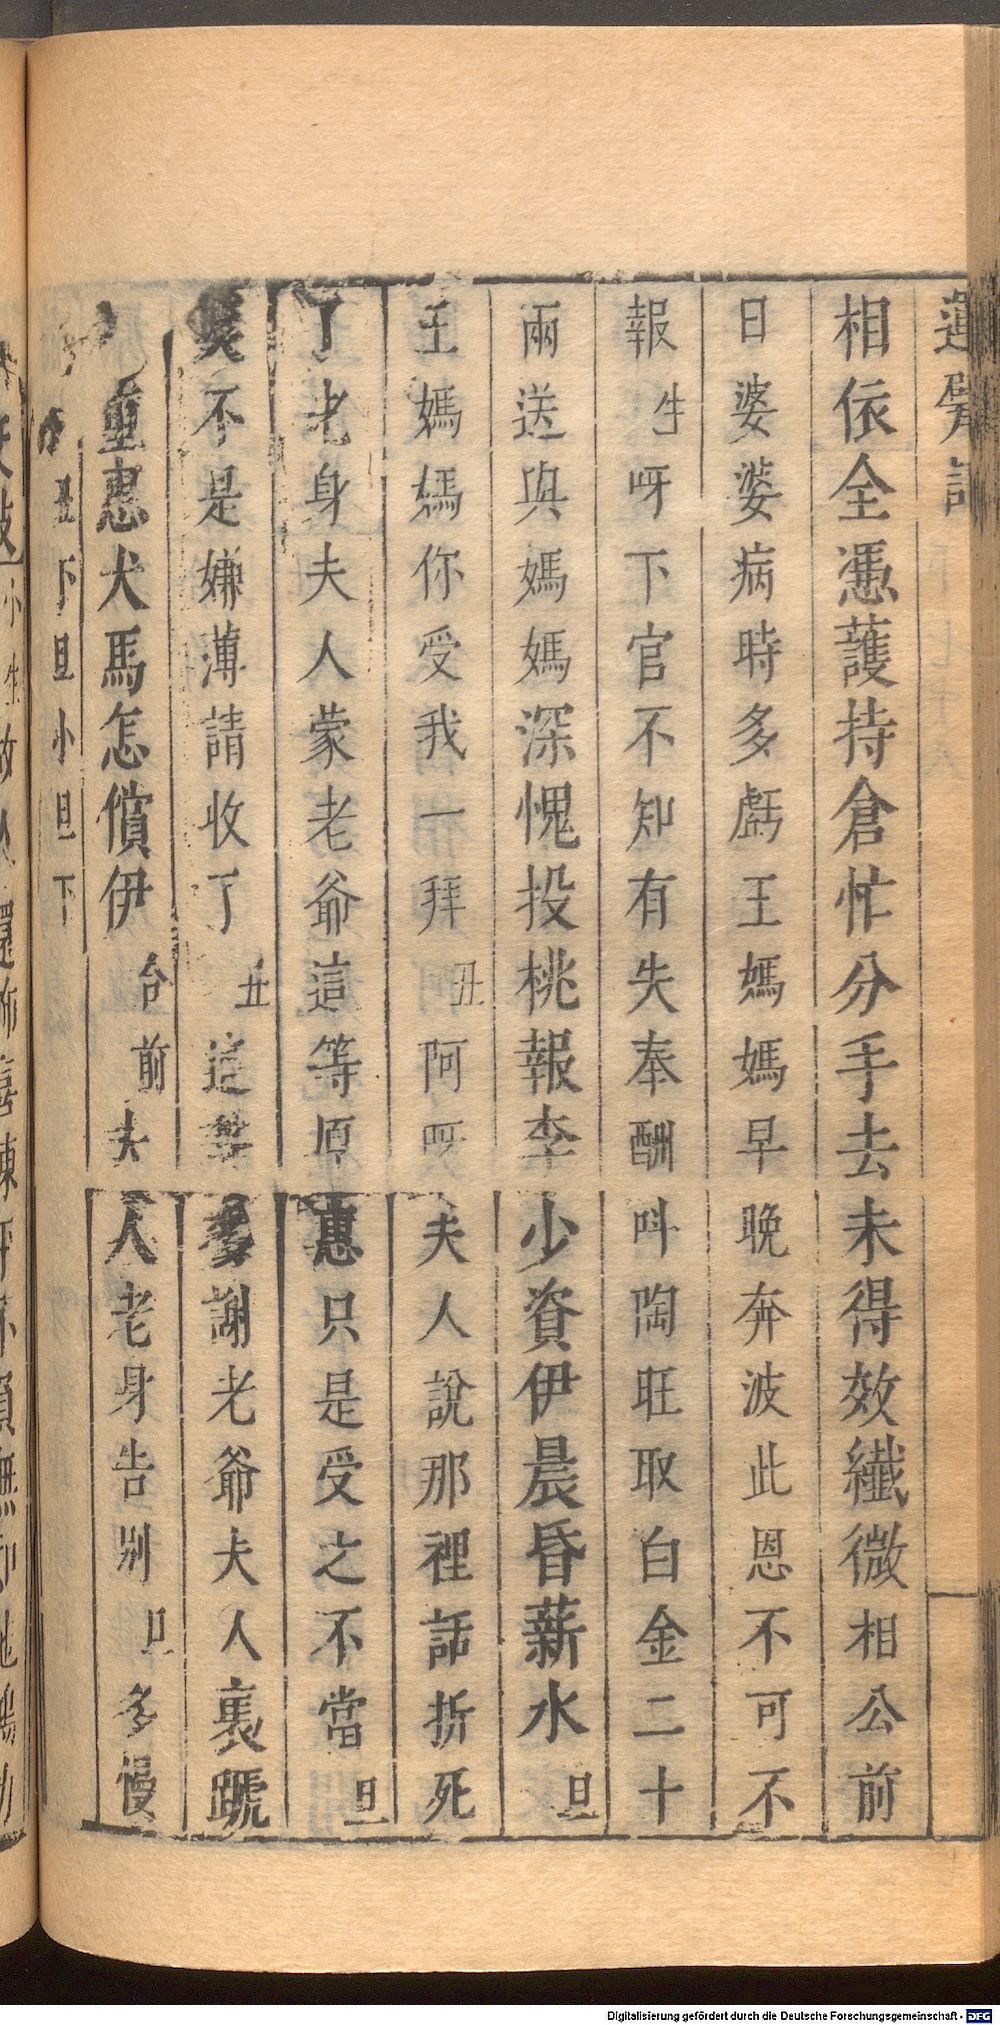 運甓記
相依全憑護持倉忙分手去未得效纖微相公前
日婆婆病時多虧王媽媽早晚奔波此恩不可不
報生呀下官不知有失奉酬呌陶旺取白金二十
兩送與媽媽深愧投桃報李少資伊晨昏薪水旦
王媽媽你受我一拜丑阿呀夫人說那裡話折死
了老身夫人蒙老爺這等厚惠只是受之不當旦
莫不是嫌薄請收了丑這等多謝老爺夫人裏蹏
重惠犬馬怎償伊台前夫人老身告別旦多慢
丑下旦小旦下
Digitalisierung gefördert durch die Deutsche Forschungsgemeinschaft - DFG